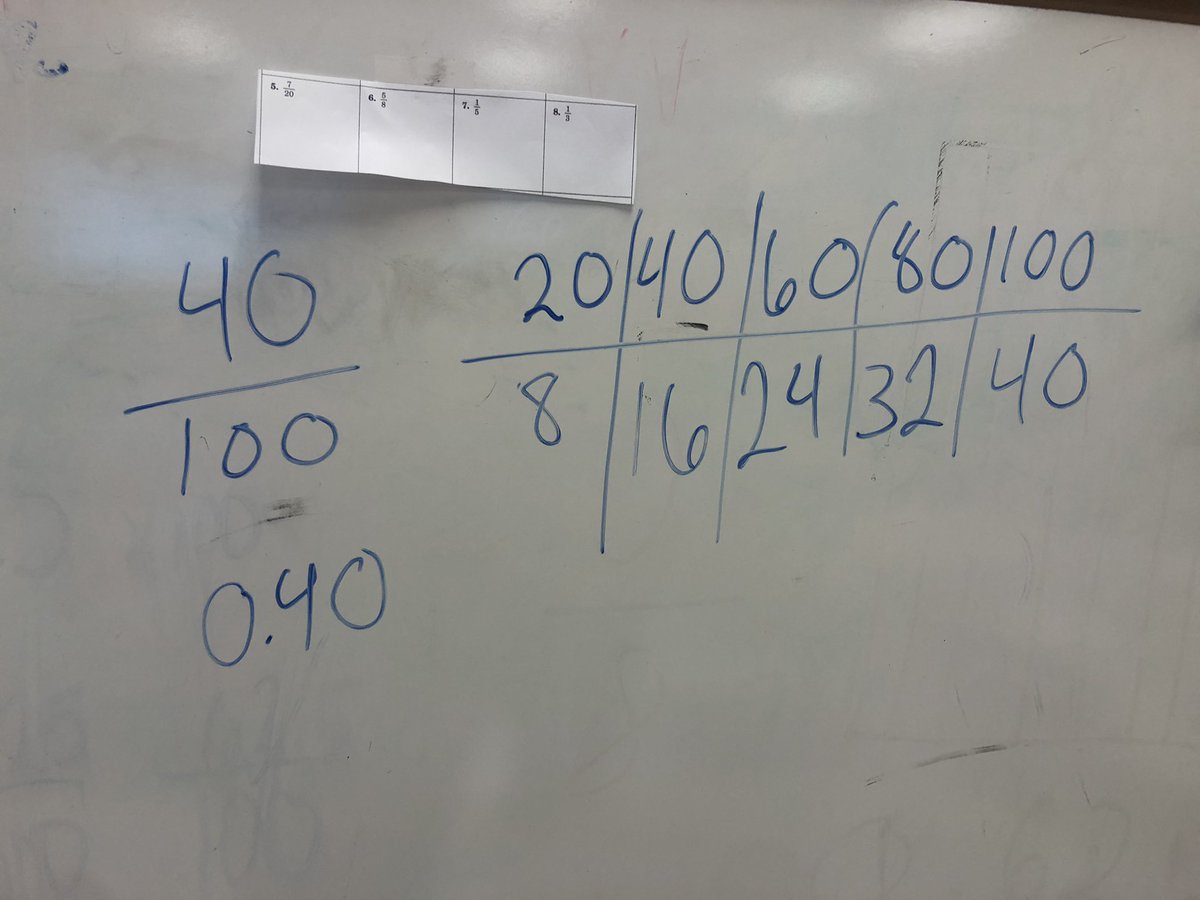 5. 7/20 6. 5/8 7. 1/5 8. 1/3
40
100
0.40
20 40 60 80 100
8 16 24 32 40